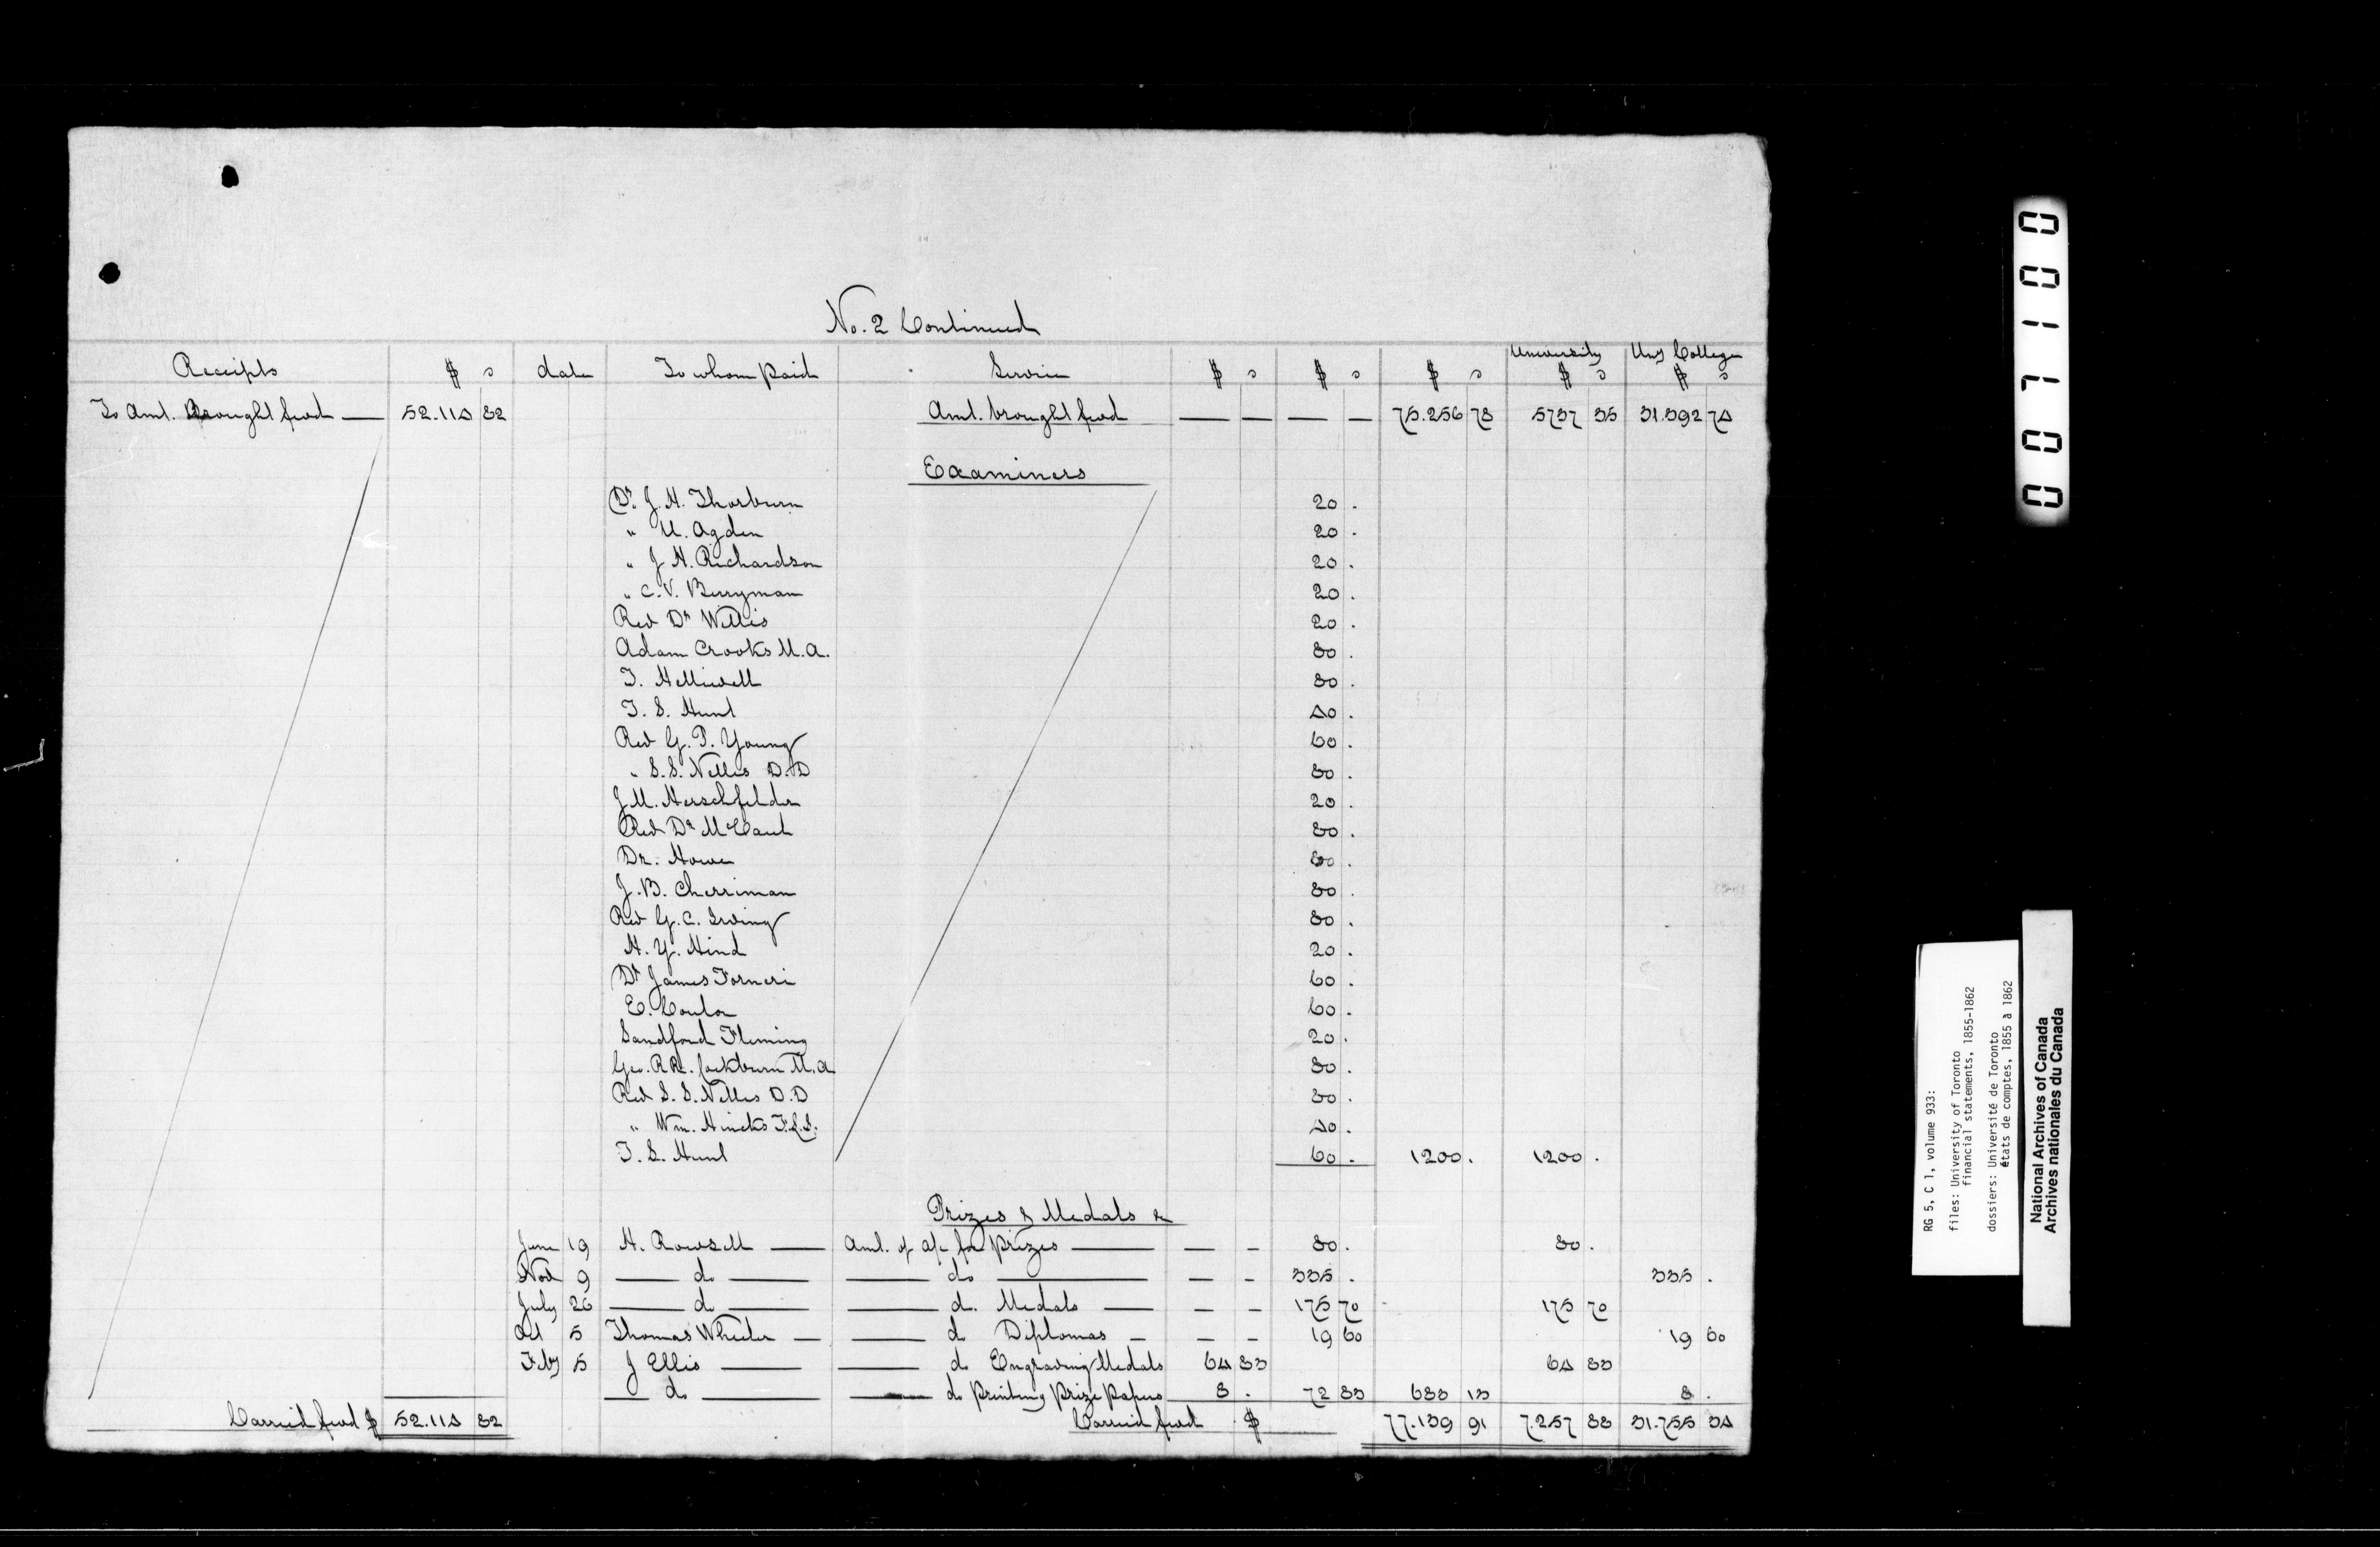 No. 2 Continued
Receipts $ c date To whom paid Service $ c $ c $ c University $ c Uny College $ c
To Amt. Brought fwd — 52.114 82 Amt. brought fwd — — — — 75.256 78 5737 35 31.392 74
Examiners
Dr. J. H. Thorburn 20 .
" U. Ogden 20 .
" J H. Richardson 20 .
" C. V. Berryman 20 .
Rev Dr Willis 20 .
Adam Crooks M.A. 80 .
T. Helliwell 80 .
T. S. Hunt 40 .
Rev G. P. Young 60 .
" S. S. Nelles D.D 80 .
J M. Herschfelder 20 .
Rev Dr McCaul 80 .
Dr. Howe 80 .
J. B. Cherriman 80 .
Rev G. C. Irving 80 .
H. Y. Hind 20 .
Dr James Forneri 60 .
E. Coulon 60 .
Sandford Fleming 20 .
Geo. R R. Cockburn M.A 80 .
Rev S. S. Nelles D.D 80 .
" Wm. Hincks F.L.S. 40 .
T. S. Hunt 60 . 1200 . 1200 .
Prizes & Medals &c
June 19 H. Rowsell — Amt. of a/c for prizes — — - 80 . 80 .
Nov 9 — do — — do — — - 335 . 335 .
July 26 — do — — do. Medals — — - 175 70 175 70
Oct 5 Thomas Wheeler — — do Diplomas — — - 19 60 19 60
Feby 5 J Ellis — — do Engraving Medals 64 83 64 83
— do — — do printing Prize Papers 8 . 72 83 683 13 8 .
Carried fwd $ 52.114 82 Carried fwd $ 77.139 91 7.257 88 31.755 34
007100
RG 5, C 1, volume 933:
files: University of Toronto
financial statements, 1855-1862
dossiers: Université de Toronto
états de comptes, 1855 à 1862
National Archives of Canada
Archives nationales du Canada